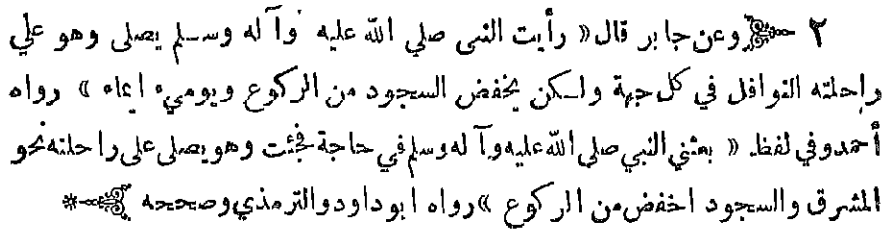 ٢ وعن جابر قال « رأيت النبي صلي الله عليه وآله وسلم يصلى وهو علي
راحلته النوافل في كل جهة ولكن يخفض السجود من الركوع ويوميء ايماء » رواه
أحمد وفي لفظ « بعثني النبي صلي الله عليه وآله وسلم في حاجة فجئت وهو يصلى على راحلته نحو
المشرق والسجود اخفض من الركوع » رواه ابو داود والترمذي وصححه *